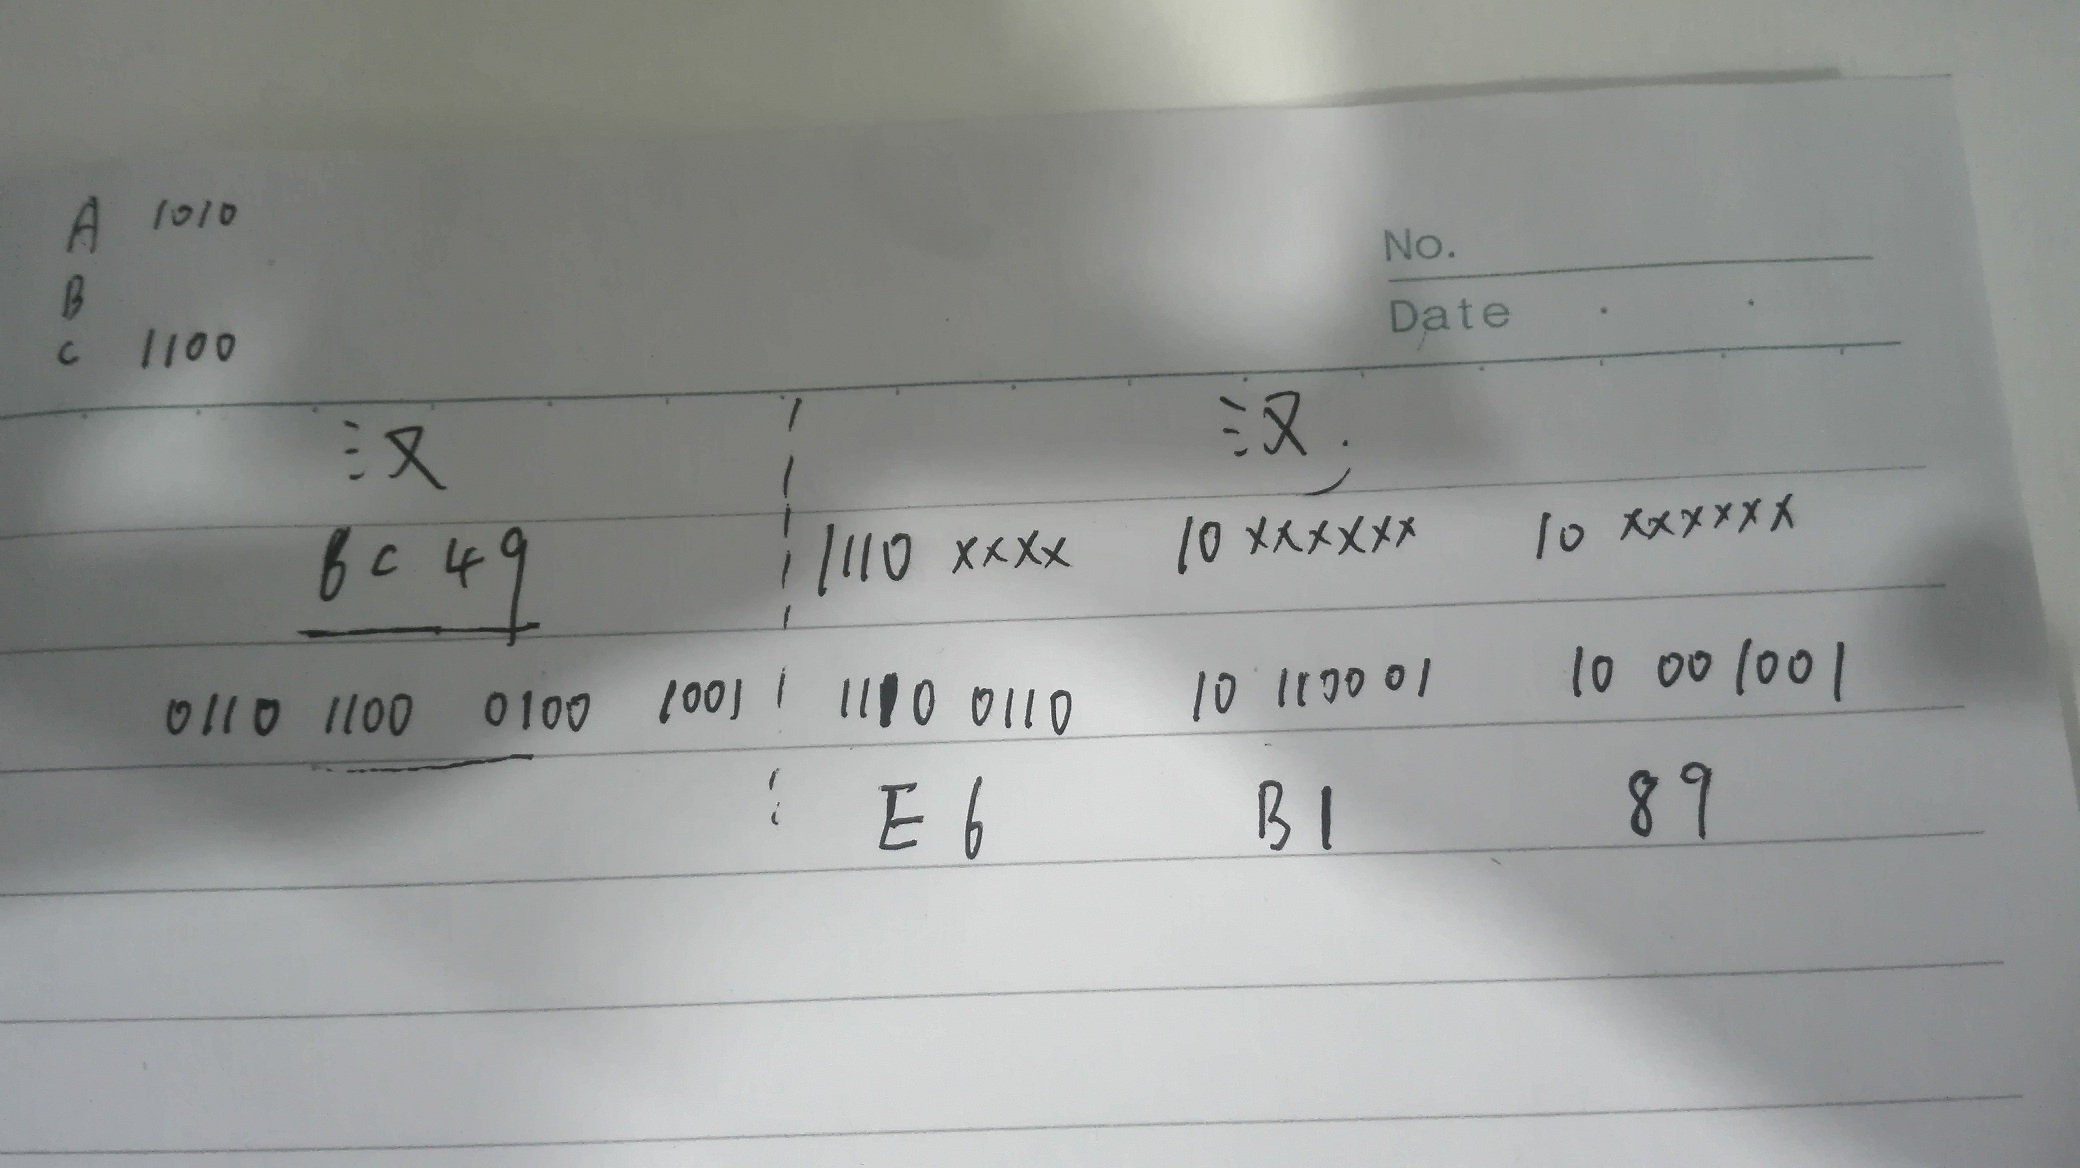 A 1010
B
C 1100
No.
Date
汉 汉
6C 49 1110 xxxx 10 xxxxxx 10 xxxxxx
0110 1100 0100 1001 1110 0110 10 110001 10 001001
E6 B1 89